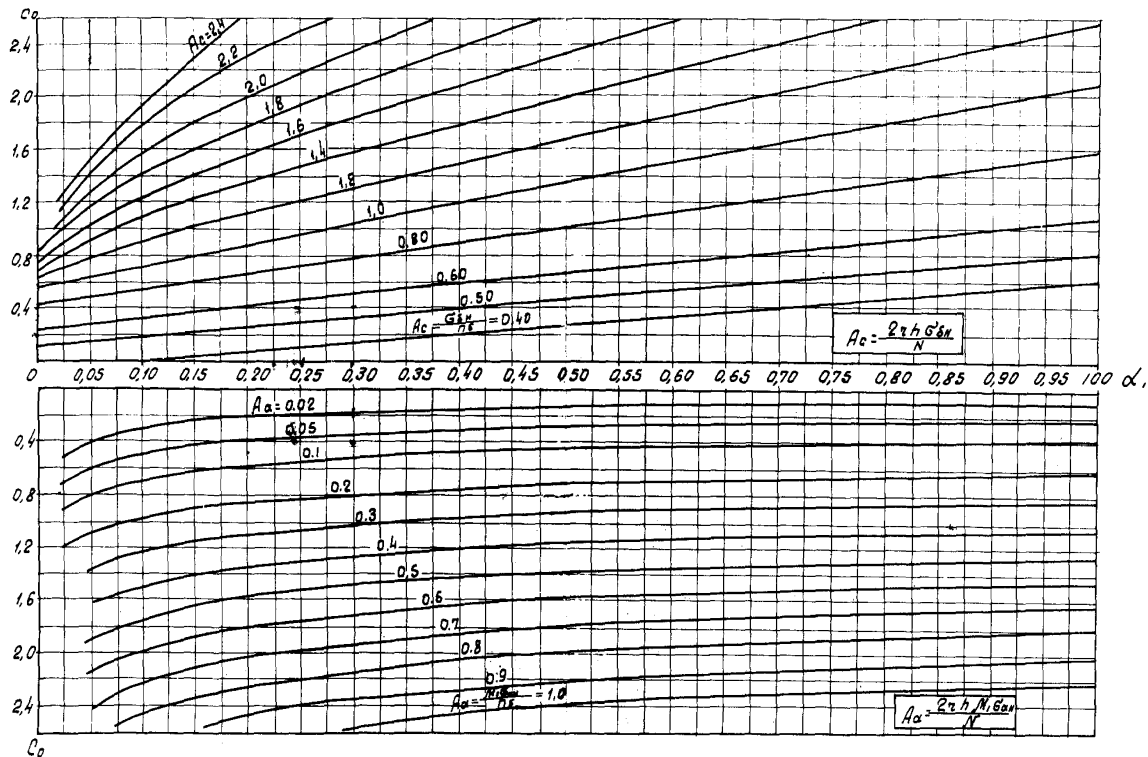 C₀
2,4
2,0
1,6
1,2
0,8
0,4
Ac=2,4
2,2
2,0
1,8
1,6
1,4
1,8
1,0
0,80
0,60
0.50
= 0,40
0 0,05 0,10 0,15 0,20 0,25 0,30 0,35 0,40 0,45 0,50 0,55 0,60 0,65 0,70 0,75 0,80 0,85 0,90 0,95 1,00 α,
Aa = 0.02
0,05
0.1
0.2
0.3
0.4
0,5
0.6
0.7
0.8
0.9
= 1,0
0,4
0,8
1,2
1,6
2,0
2,4
C₀